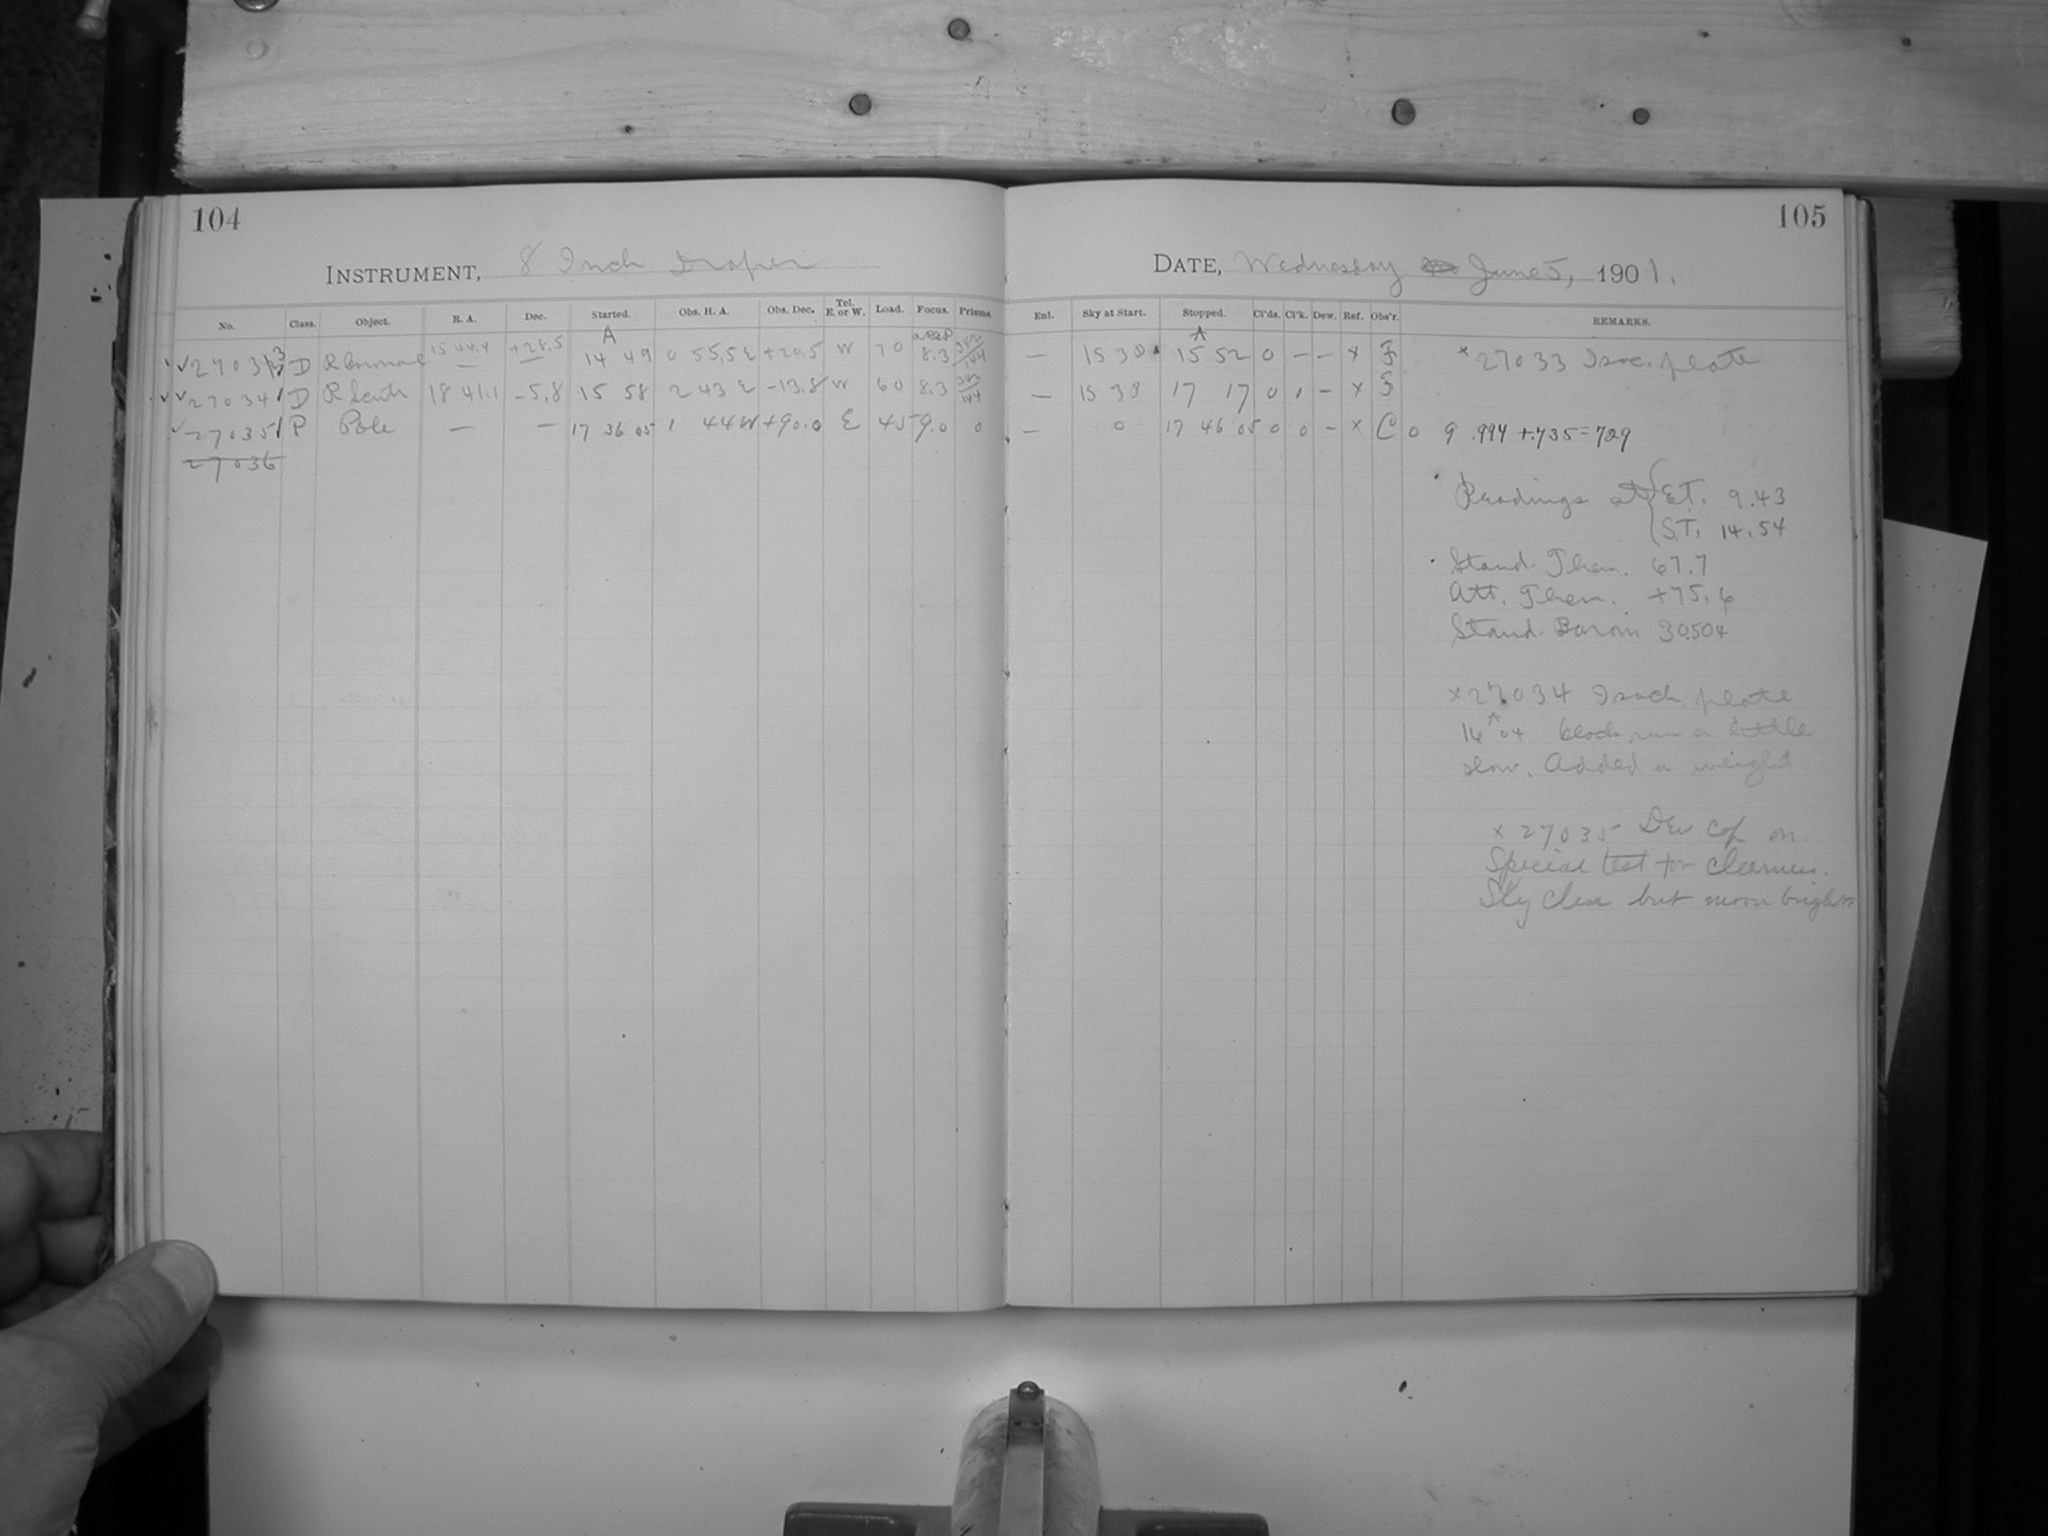 104
INSTRUMENT, 8 Inch Draper
No. Class. Object. R. A. Dec. Started. Obs. H. A. Obs. Dec. Tel. E. or W. Load. Focus. Prisms.
A
27033 D 15 44.4 +28.5 14 49 0 55.5 E +20.5 W 70 8.3
27034 D R Scuti 18 41.1 -5.8 15 58 2 43 E -13.8 W 60 8.3
27035 P Pole — — 17 36 05 1 44 W +90.0 E 45 9.0 0
27036
105
DATE, Wednesday June 5, 1901.
Enl. Sky at Start. Stopped. Cl'ds. Cl'k. Dew. Ref. Obs'r. REMARKS.
A
— 15 38 15 52 0 — — x F x 27033 Isoc. plate
— 15 38 17 17 0 1 — x F
— 0 17 46 05 0 0 — x C 0 9 .994 +.735=729
Readings at E.T. 9.43
S.T. 14.54
Stand. Ther. 67.7
Att. Ther. +75.6
Stand. Barom 30.504
x 27034 Isoch. plate
16 04 clock run a little
slow. Added a weight
x 27035 Dew cap on.
Special test for clearness.
Sky clear but moon bright